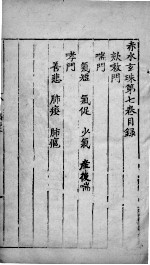 赤水玄珠第七卷目錄
欬嗽門
喘門
氣短　氣促　少氣　產後喘
哮門
善悲　肺痿　肺癰